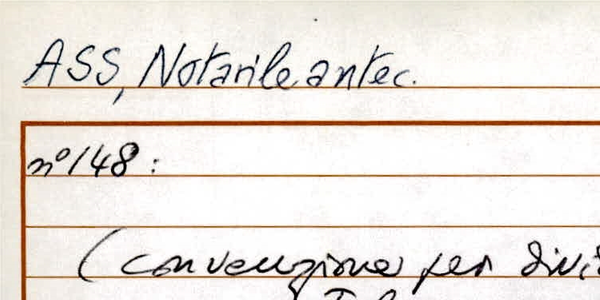 ASS, Notarile antec.
n° 148 :
(convenzione per divi